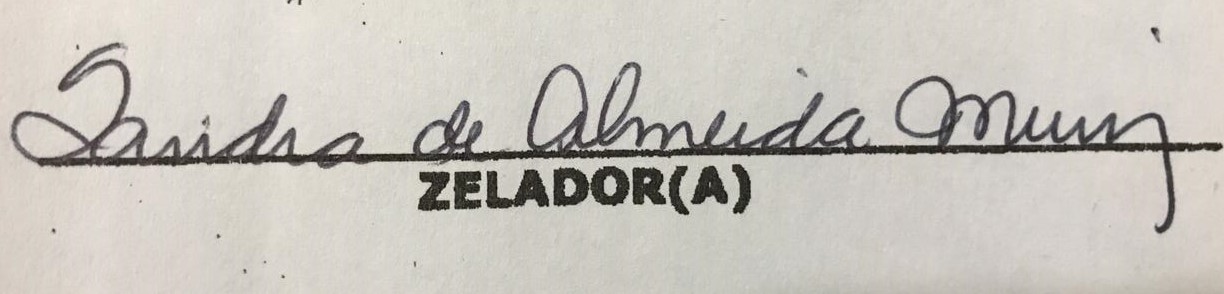 Sandra de Almeida Muniz
ZELADOR(A)